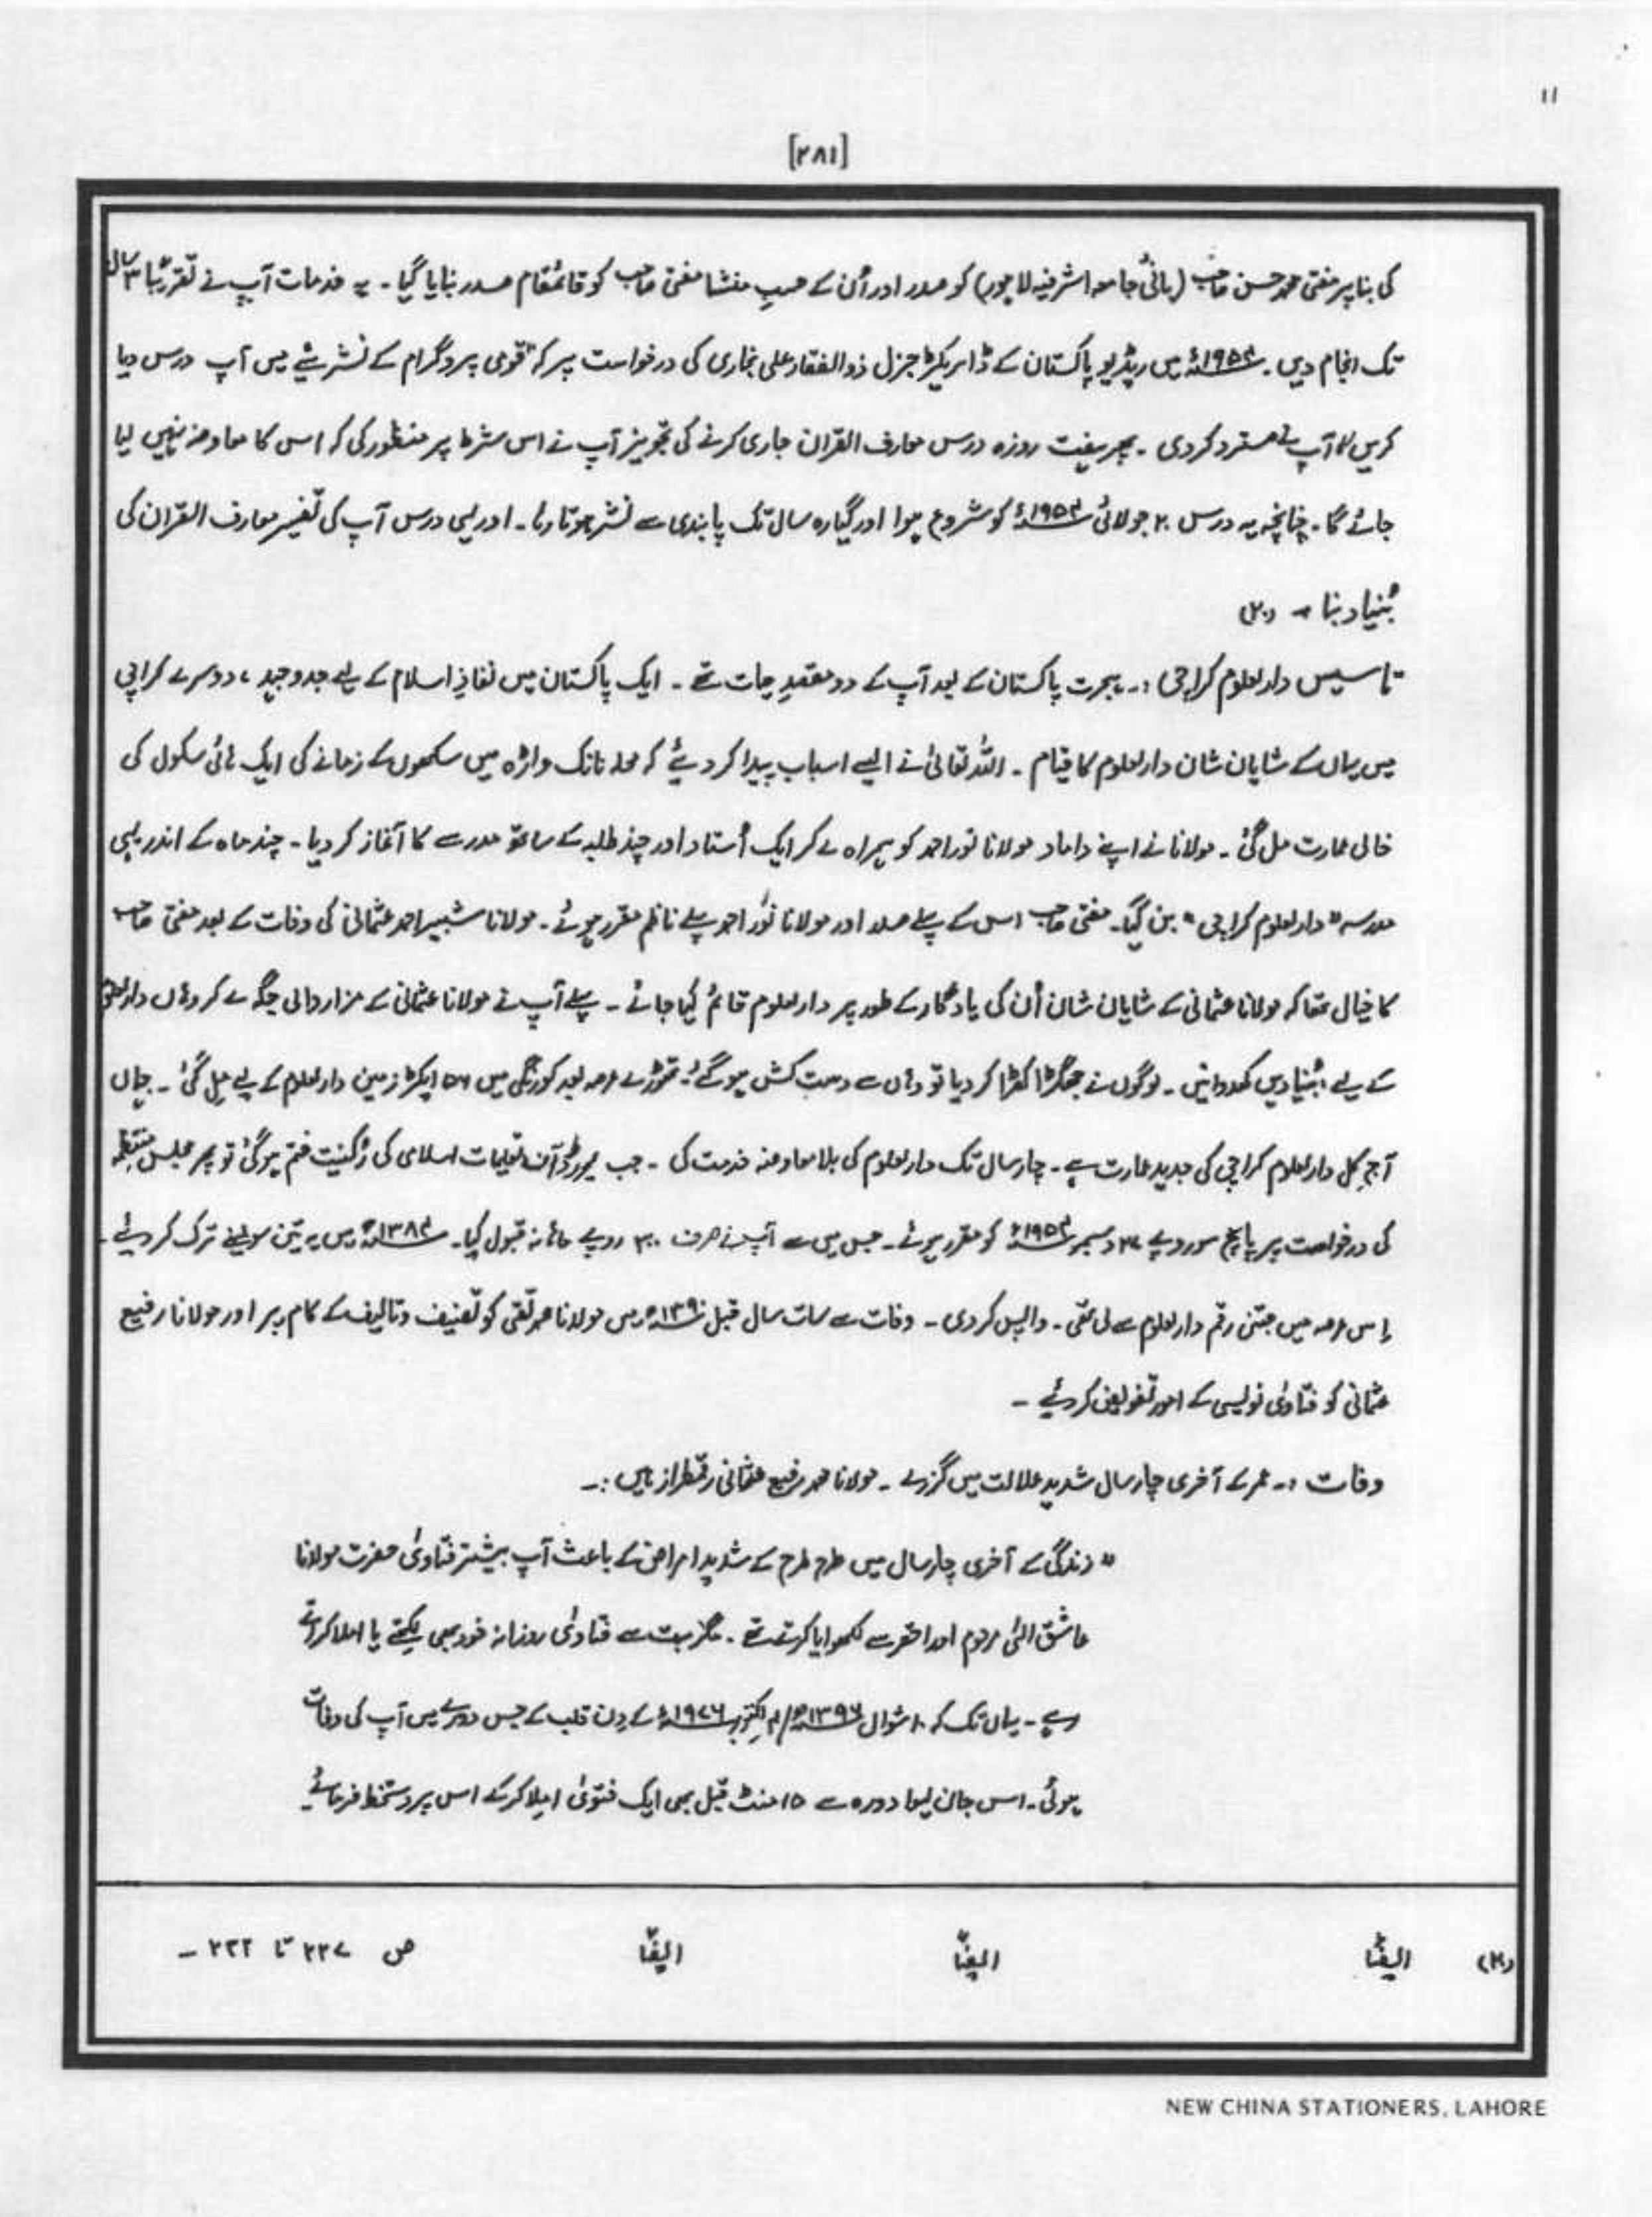 ۱۱
[۲۸۱]
کی بنا پر مفتی محمد حسن صاحب (بانیٔ جامعہ اشرفیہ لاہور) کو صدر اور اُن کے حسبِ منشا مفتی صاحب کو قائمقام صدر بنایا گیا ۔ یہ خدمات آپ نے تقریبًا ۳ سال
تک انجام دیں ۔ ۱۹۵۴ء میں ریڈیو پاکستان کے ڈائریکٹر جنرل ذوالفقار علی بخاری کی درخواست پر کہ "قومی پروگرام کے نشریئے میں آپ درس دیا
کریں" آپ نے مسترد کردی ۔ پھر ہفت روزہ درس معارف القرآن جاری کرنے کی تجویز آپ نے اس شرط پر منظور کی کہ اس کا معاوضہ نہیں لیا
جائے گا ۔ چنانچہ یہ درس ۲ جولائی ۱۹۵۴ء کو شروع ہوا اور گیارہ سال تک پابندی سے نشر ہوتا رہا ۔ اور یہی درس آپ کی تفسیر معارف القرآن کی
بُنیاد بنا ۔ (۲۰)
تاسیس دارالعلوم کراچی :۔ ہجرت پاکستان کے بعد آپ کے دو مقصدِ حیات تھے ۔ ایک پاکستان میں نفاذِ اسلام کے لیے جدوجہد ، دوسرے کراچی
میں یہاں کے شایان شان دارالعلوم کا قیام ۔ اللہ تعالیٰ نے ایسے اسباب پیدا کر دیئے کہ محلہ نانک واڑہ میں سکھوں کے زمانے کی ایک ہائی سکول کی
خالی عمارت مل گئی ۔ مولانا نے اپنے داماد مولانا نور احمد کو ہمراہ لے کر ایک اُستاد اور چند طلبہ کے ساتھ مدرسے کا آغاز کر دیا ۔ چند ماہ کے اندر یہی
مدرسہ "دارالعلوم کراچی" بن گیا ۔ مفتی صاحب اس کے پہلے صدر اور مولانا نور احمد پہلے ناظم مقرر ہوئے ۔ مولانا شبیر احمد عثمانی کی وفات کے بعد مفتی صاحب
کا خیال تھا کہ مولانا عثمانی کے شایان شان اُن کی یادگار کے طور پر دارالعلوم قائم کیا جائے ۔ پہلے آپ نے مولانا عثمانی کے مزار والی جگہ لے کر وہاں دارالعلوم
کے لیے بُنیادیں کھدوائیں ۔ لوگوں نے جھگڑا کھڑا کر دیا تو وہاں سے دست کش ہو گئے ۔ تھوڑے عرصہ بعد کورنگی میں ۵۶ ایکڑ زمین دارالعلوم کے لیے مل گئی ۔ جہاں
آج کل دارالعلوم کراچی کی جدید عمارت ہے ۔ چار سال تک دارالعلوم کی بلا معاوضہ خدمت کی ۔ جب بورڈ آف تعلیمات اسلامی کی رُکنیت ختم ہو گئی تو پھر مجلس منتظمہ
کی درخواست پر پانچ سو روپے دسمبر ۱۹۵۴ء کو مقرر ہوئے ۔ جس میں سے آپ نے صرف ۳۰۰ روپے ماہانہ قبول کیا ۔ ۱۳۸۴ھ میں یہ تین سو بھی ترک کر دیئے ۔
اِس عرصہ میں جتنی رقم دارالعلوم سے لی تھی ۔ واپس کر دی ۔ وفات سے سات سال قبل ۱۳۹۰ھ میں مولانا محمد تقی کو تصنیف و تالیف کے کام پر اور مولانا رفیع
عثمانی کو فتاویٰ نویسی کے امور تفویض کر دیئے ۔
وفات :۔ عمر کے آخری چار سال شدید علالت میں گزرے ۔ مولانا محمد رفیع عثمانی رقمطراز ہیں :۔
"زندگی کے آخری چار سال میں طرح طرح کے شدید امراض کے باعث آپ بیشتر فتاویٰ حضرت مولانا
عاشق الٰہی مرحوم اور احقر سے لکھوایا کرتے تھے ۔ مگر بہت سے فتاویٰ روزانہ خود بھی لکھتے یا املا کراتے
رہے ۔ یہاں تک کہ ۱۰ شوال ۱۳۹۶ھ / اکتوبر ۱۹۷۶ء کے دِن قلب کے جس دورے میں آپ کی وفات
ہوئی ۔ اس جان لیوا دورہ سے ۱۵ منٹ قبل بھی ایک فتویٰ املا کر کے اس پر دستخط فرمائے
(۲۰) ایضًا ایضًا ایضًا ص ۲۲۷ تا ۲۳۲ ۔
NEW CHINA STATIONERS, LAHORE